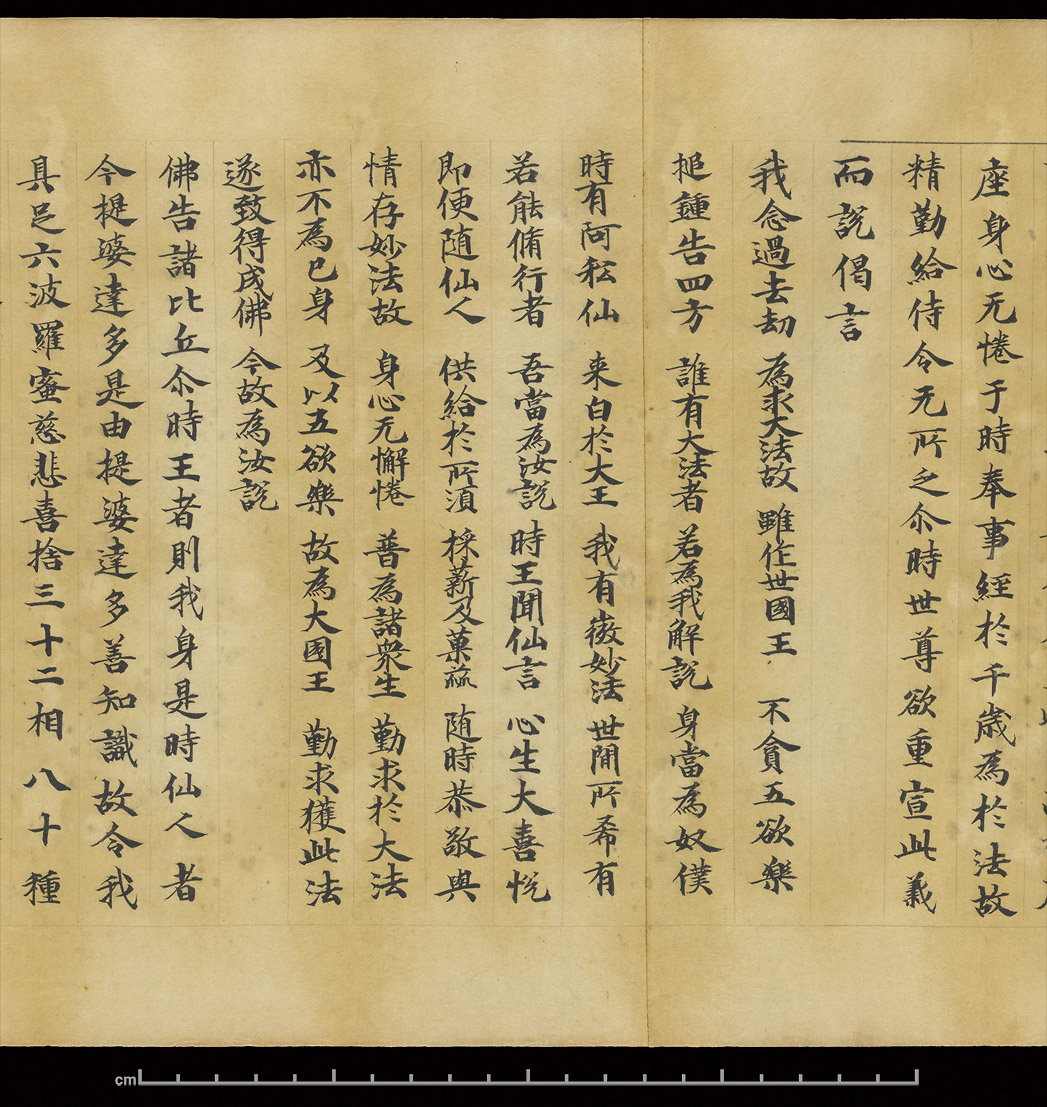 座身心无惓于時奉事經於千歲為於法故
精勤給侍令无所乏尒時世尊欲重宣此義
而說偈言
我念過去劫 為求大法故 雖作世國王 不貪五欲樂
搥鍾告四方 誰有大法者 若為我解說 身當為奴僕
時有阿私仙 来白於大王 我有微妙法 世間所希有
若能脩行者 吾當為汝說 時王聞仙言 心生大喜悅
即便随仙人 供給於所湏 採薪及菓蓏 随時恭敬與
情存妙法故 身心无懈惓 普為諸衆生 勤求於大法
亦不為己身 及以五欲樂 故為大囯王 勤求獲此法
遂致得成佛 今故為汝說
佛告諸比丘尒時王者則我身是時仙人者
今提婆達多是由提婆達多善知識故令我
具足六波羅蜜慈悲喜捨三十二相八十種